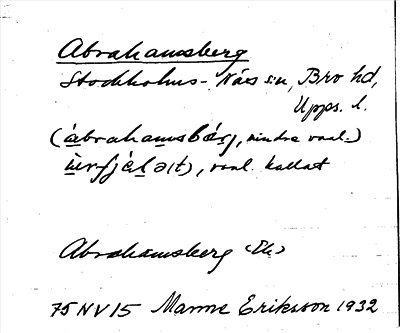 Abrahamsberg
Stockholms-Näs sn, Bro hd,
Upps. l.
(àbrahamsbárj, mindre vanl.)
vanl. kallat
Abrahamsberg (Ek)
75 NV 15 Manne Eriksson 1932